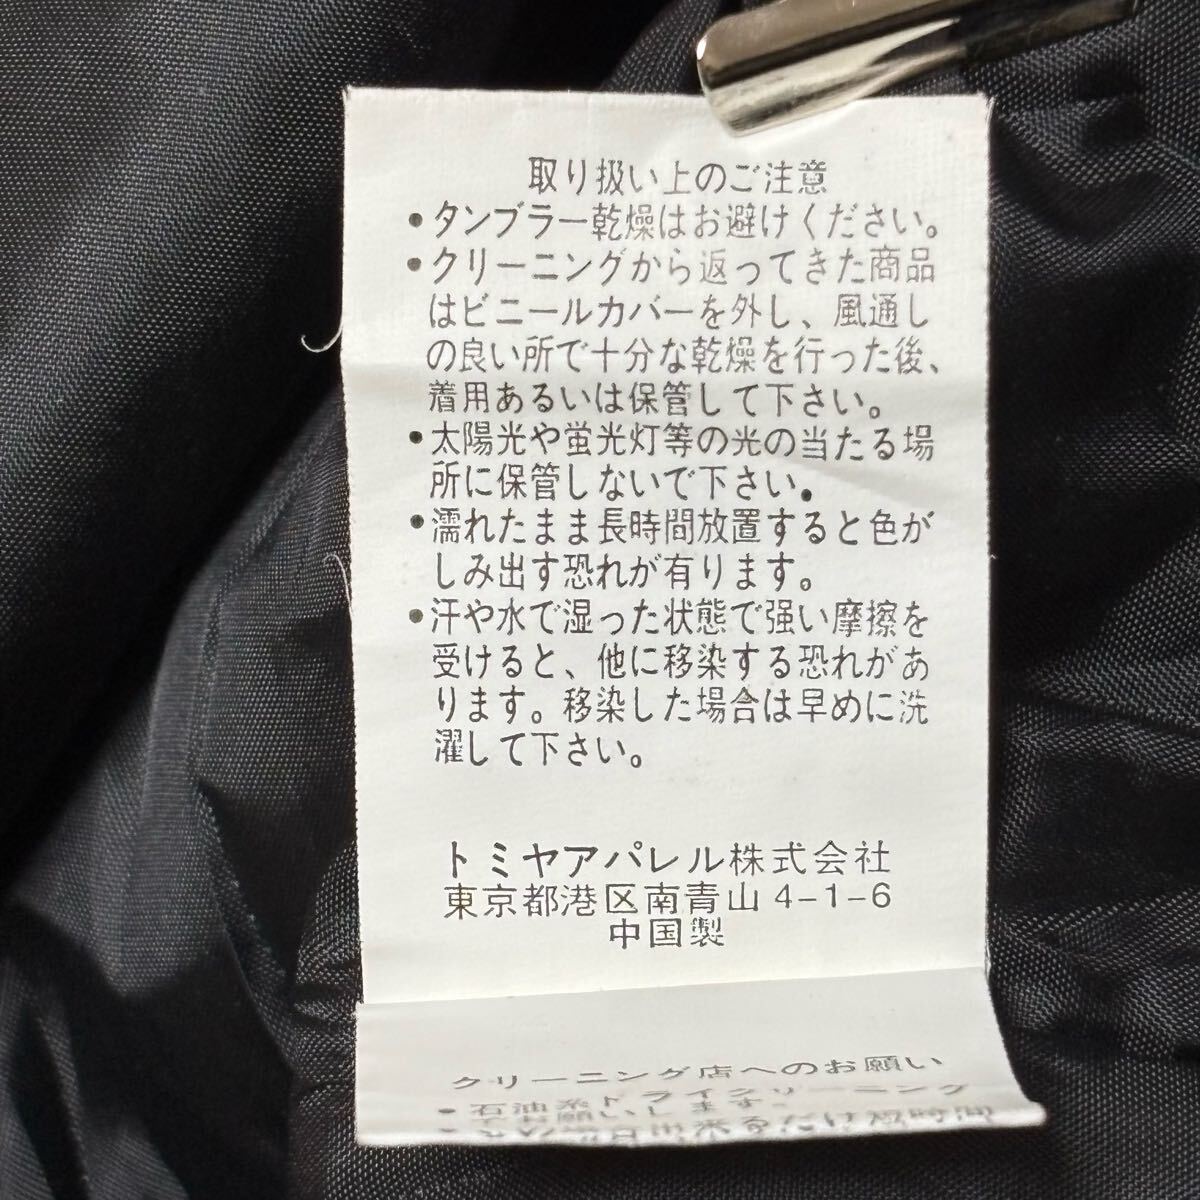 取り扱い上のご注意
•タンブラー乾燥はお避けください。
•クリーニングから返ってきた商品
はビニールカバーを外し、風通し
の良い所で十分な乾燥を行った後、
着用あるいは保管して下さい。
•太陽光や蛍光灯等の光の当たる場
所に保管しないで下さい.
•濡れたまま長時間放置すると色が
しみ出す恐れが有ります。
•汗や水で湿った状態で強い摩擦を
受けると、他に移染する恐れがあ
ります。移染した場合は早めに洗
濯して下さい。
トミヤアパレル株式会社
東京都港区南青山4-1-6
中国製
クリーニング店へのお願い
•石油系ドライクリーニング
でお願いします。